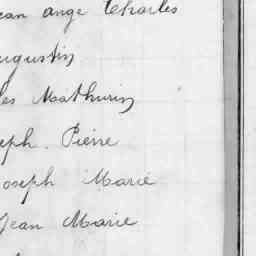 ean ange Charles
ugustin
les Mathurin
eph. Pierre
oseph Marie
Jean Marie